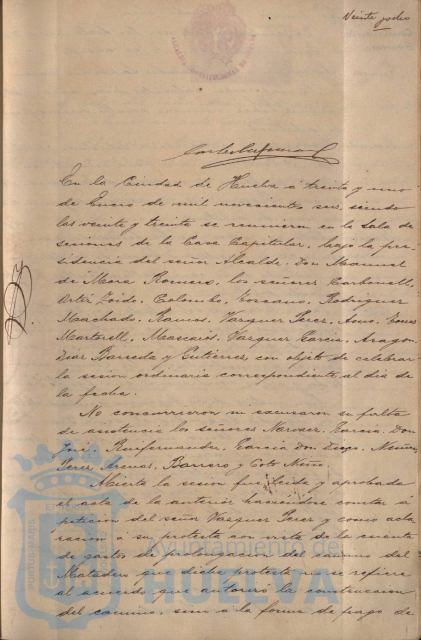 Veinte y dos
En la Ciudad de Huelva á treinta y uno
de Enero de mil novecientos seis, siendo
las veinte y treinta se reunieron en la Sala de
sesiones de la Casa Capitular, bajo la pre-
sidencia del señor Alcalde Don Manuel
de Mora Romero, los señores Carbonell,
Ortiz, Toido, Colombo, Rodriguez
Machado, Ramos, Vazquez Perez,
Martorell, Mascarós, Vazquez Garcia, Aragon,
Diaz Barreda y Gutierrez, con objeto de celebrar
la sesion ordinaria correspondiente al dia de
la fecha.
No concurrieron ni escusaron su falta
de asistencia los señores Garcia Don
José, Garcia Don Diego, Muñoz
Perez, Barroso y Coto Mora
Abierta la sesion fué leida y aprobada
el acta de la anterior haciendose constar á
peticion del señor Vazquez Perez y como acla
racion á su protesta con vista de la cuenta
de gastos de del camino del
Matadero que dicha protesta no se refiere
al acuerdo que autorizó la construccion
del camino, sino á la forma de pago de
Ayuntamiento de
HUELVA